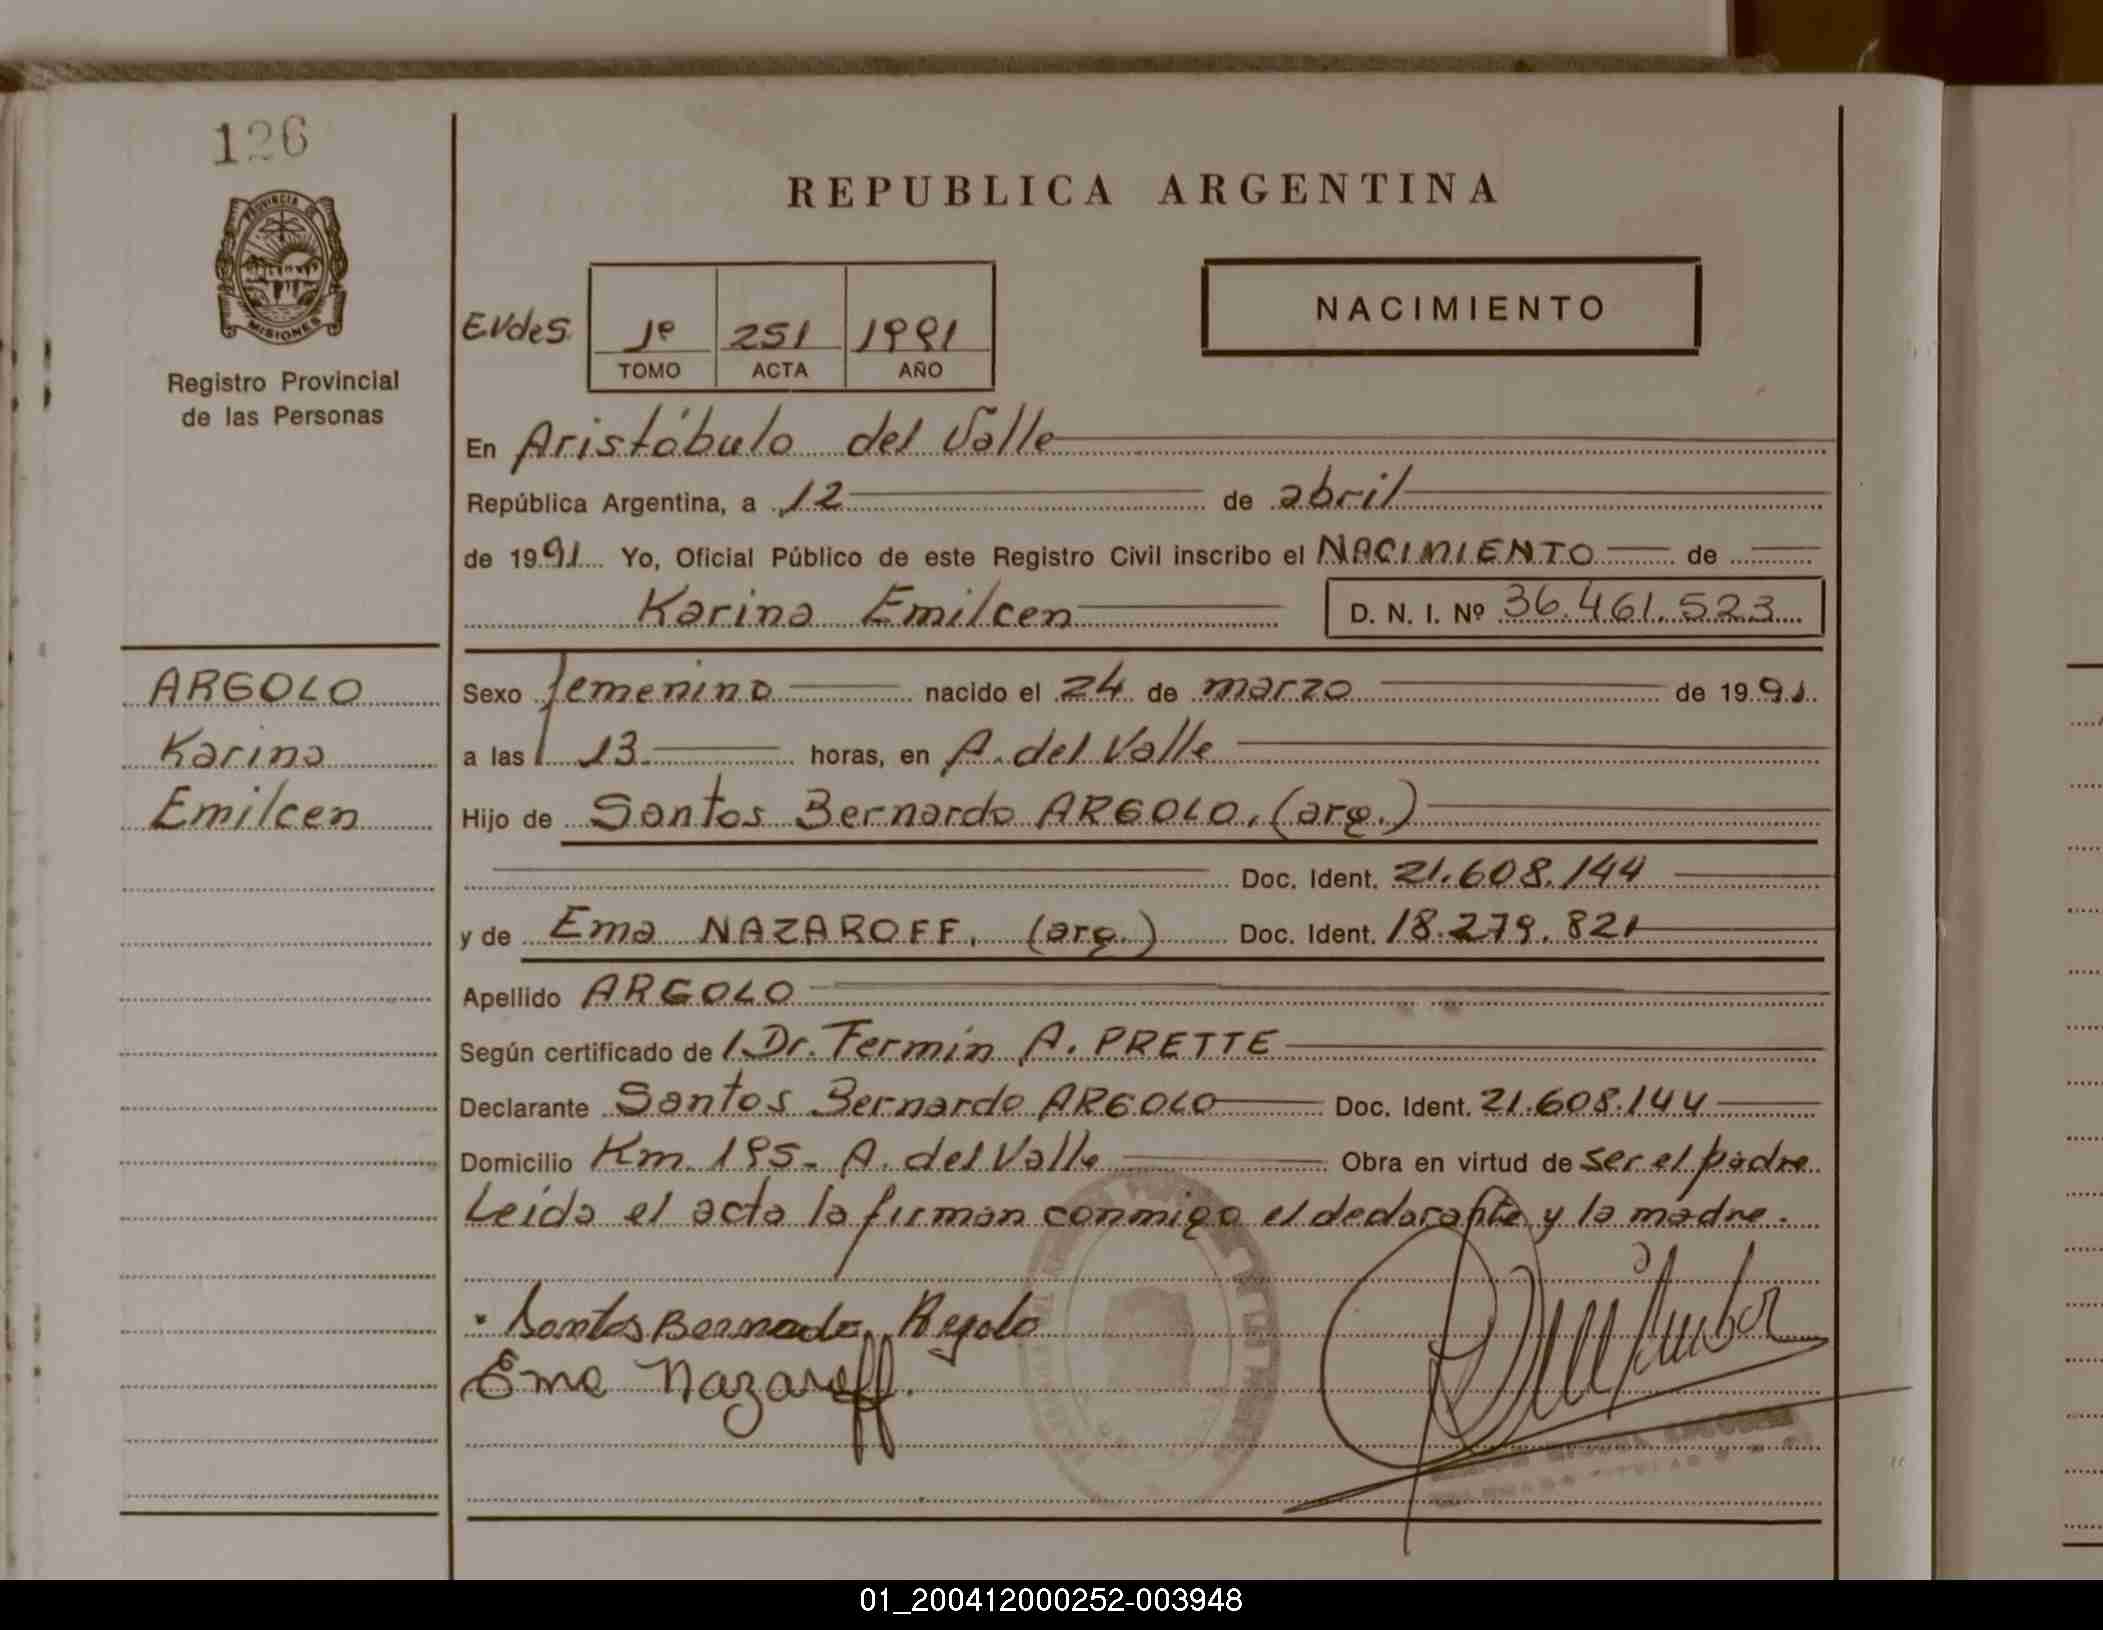 126
PROVINCIA DE
MISIONES
Registro Provincial
de las Personas
REPUBLICA ARGENTINA
NACIMIENTO
EVdeS. 1º 251 1991
TOMO ACTA AÑO
En Aristóbulo del Valle
República Argentina, a 12 de abril
de 1991 Yo, Oficial Público de este Registro Civil inscribo el NACIMIENTO de
Karina Emilcen D. N. I. Nº 36.461.523
ARGOLO
Karina
Emilcen
Sexo femenino nacido el 24 de marzo de 1991
a las 13 horas, en A. del Valle
Hijo de Santos Bernardo ARGOLO, (arg.)
Doc. Ident. 21.608.144
y de Ema NAZAROFF, (arg.) Doc. Ident. 18.279.821
Apellido ARGOLO
Según certificado de l Dr. Fermín A. PRETTE
Declarante Santos Bernardo ARGOLO Doc. Ident. 21.608.144
Domicilio Km. 195- A. del Valle Obra en virtud de ser el padre
Leída el acta la firman conmigo el declarante y la madre.
Santos Bernardo Argolo
Ema Nazaroff.
01_200412000252-003948